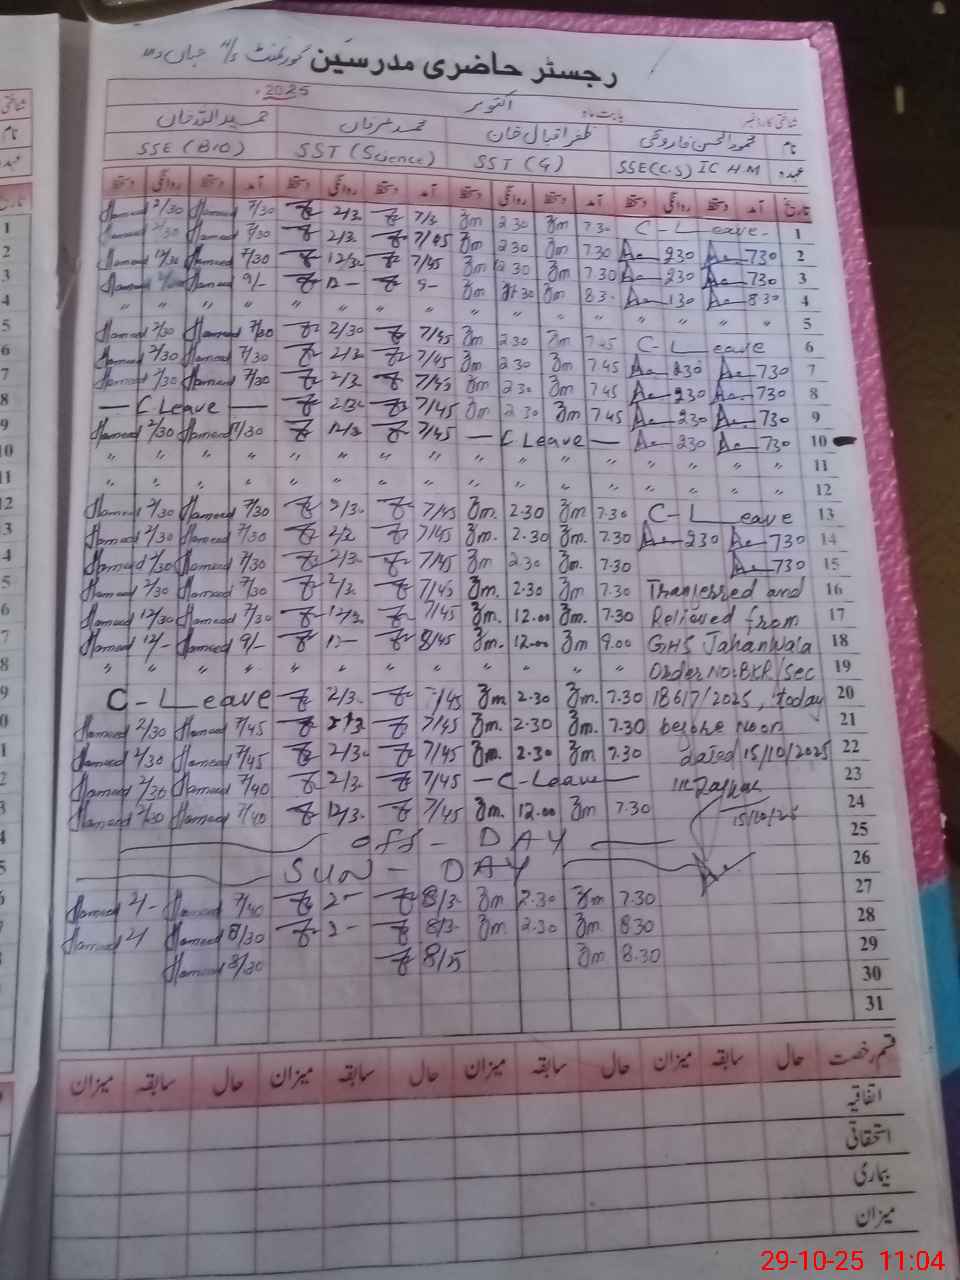 رجسٹر حاضری مدرسین گورنمنٹ
شناختی کارڈ نمبر بابت ماہ اکتوبر 2025
نام محمودالحسن فاروقی ظفر اقبال خان محمد عرفان حمید اللہ خان
عہدہ SSE(C.S) IC H.M SST (G) SST (Science) SSE (BIO)
تاریخ آمد دستخط روانگی دستخط آمد دستخط روانگی دستخط آمد دستخط روانگی دستخط آمد دستخط روانگی دستخط
Hameed 2/30 Hameed 7/30 2/3. 7/3 Zm 2 30 Zm 7 30 C - Leave 1
Hameed 2/30 Hameed 7/30 2/3. 7/45 Zm 2 30 Zm 7 30 230 730 2
Hameed 12/30 Hameed 7/30 12/3. 7/45 Zm 12 30 Zm 7.30 230 730 3
Hameed Hameed 9/- 12 - 9- Zm Zm 8 30 130 8 30 4
" " " " " " " " " " " " " " " 5
Hameed 2/30 Hameed 7/30 2/30 7/45 Zm 2 30 Zm 7 45 C - Leave 6
Hameed 2/30 Hameed 7/30 2/3. 7/45 Zm 2 30 Zm 7 45 230 730 7
Hameed 2/30 Hameed 7/30 2/3. 7/45 Zm 2 30 Zm 7 45 230 730 8
— C Leave — 2/30 7/45 Zm 2 30 Zm 7 45 230 730 9
Hameed 2/30 Hameed 7/30 12/3 7/45 — C Leave — 230 730 10
" " " " " " " " " " " " " " " 11
" " " " " " " " " " " " " " " 12
Hameed 2/30 Hameed 7/30 2/3. 7/45 Zm 2.30 Zm 7.30 C - Leave 13
Hameed 2/30 Hameed 7/30 2/3. 7/45 Zm. 2.30 Zm. 7.30 230 730 14
Hameed 2/30 Hameed 7/30 2/3. 7/45 Zm 2.30 Zm. 7.30 730 15
Hameed 2/30 Hameed 7/30 2/3. 7/45 Zm. 2.30 Zm. 7.30 Transferred and 16
Hameed 12/30 Hameed 7/30 12/3. 7/45 Zm. 12.00 Zm. 7.30 Relieved from 17
Hameed 12/- Hameed 9/- 12- 8/45 Zm. 12.00 Zm 9.00 GHS Jahanwala 18
" " " " " " " " " " " Order NO:BKR/Sec 19
C - Leave 2/3. 7/45 Zm 2.30 Zm. 7.30 18617/2025, today 20
Hameed 2/30 Hameed 7/45 2/3 7/45 Zm. 2.30 Zm. 7.30 before noon 21
Hameed 2/30 Hameed 7/45 2/3. 7/45 Zm. 2.30 Zm 7.30 dated 15/10/2025 22
Hameed 2/30 Hameed 7/40 2/3. 7/45 — C-Leave — 23
Hameed 2/30 Hameed 7/40 12/3. 7/45 Zm. 12.00 Zm 7.30 15/10/25 24
OFF - DAY 25
SUN - DAY 26
Hameed 2/- Hameed 7/40 2- 8/3- Zm 2.30 Zm 7.30 27
Hameed 2/ Hameed 8/30 2- 8/3- Zm 2.30 Zm 8 30 28
Hameed 8/30 8/25 Zm 8.30 29
30
31
قسم رخصت حال سابقہ میزان حال سابقہ میزان حال سابقہ میزان حال سابقہ میزان
اتفاقیہ
استحقاقی
بیماری
میزان
29-10-25 11:04